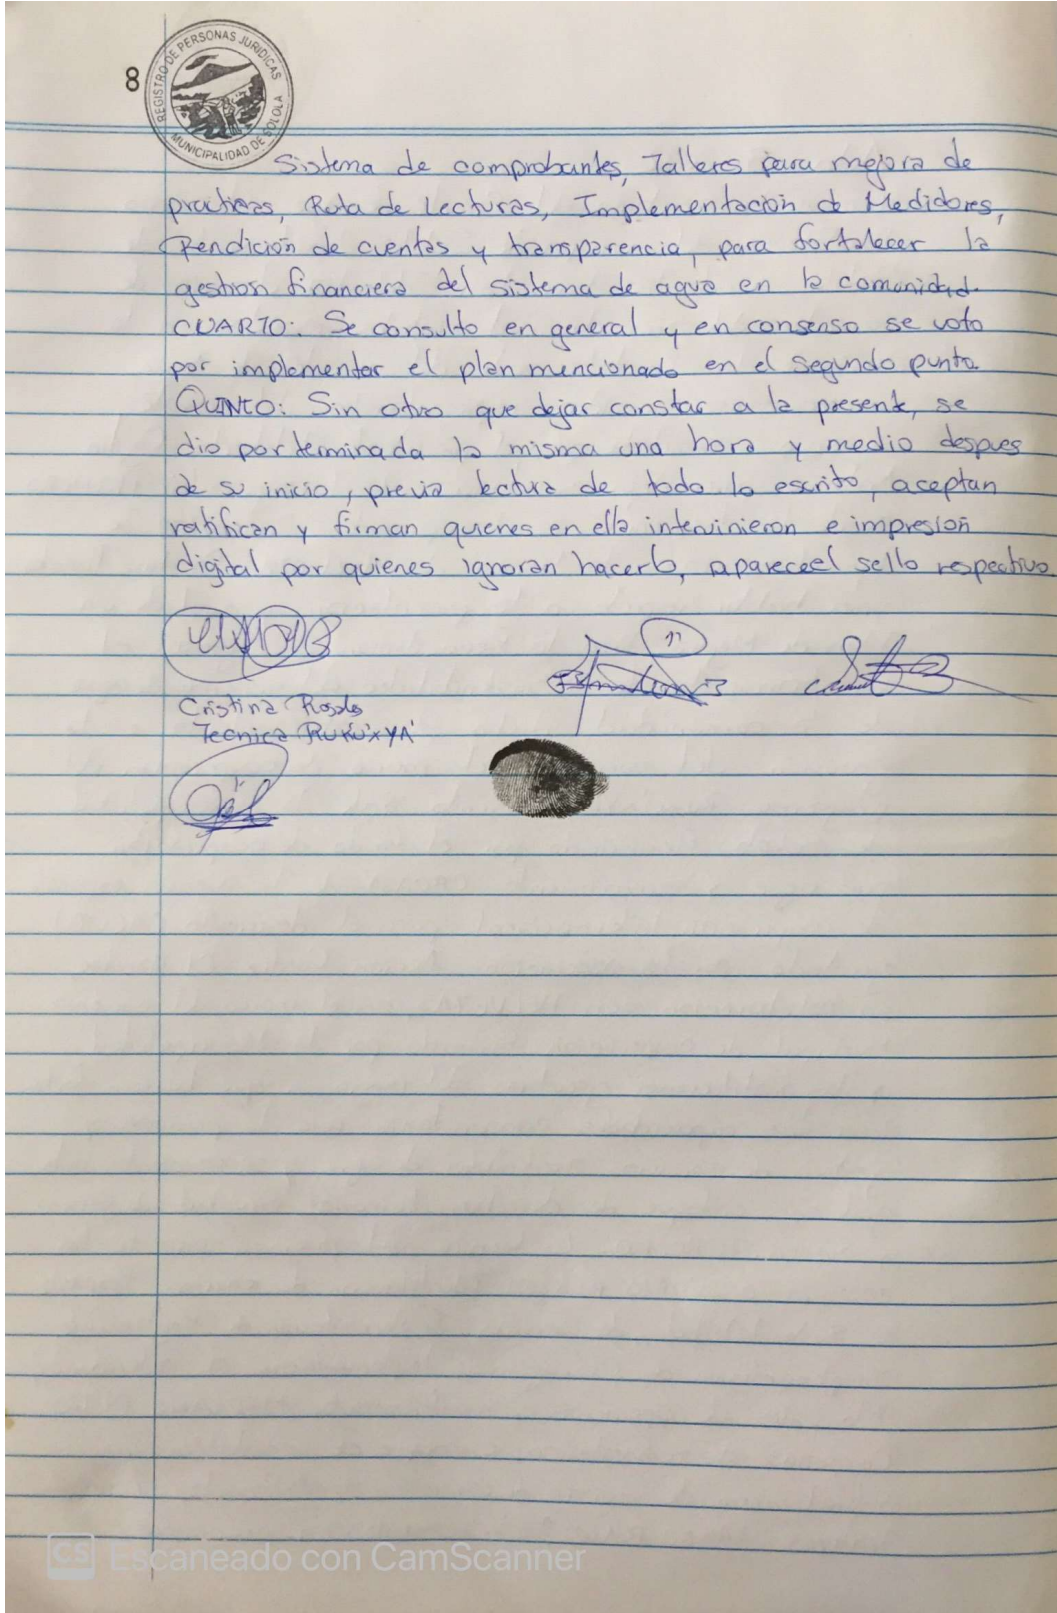 8
REGISTRO DE PERSONAS JURIDICAS
MUNICIPALIDAD DE SOLOLA
Sistema de comprobantes, Talleres para mejora de
practicas, Ruta de Lecturas, Implementación de Medidores,
Rendición de cuentas y transparencia, para fortalecer la
gestion financiera del sistema de agua en la comunidad.
CUARTO: Se consulto en general y en consenso se voto
por implementar el plan mencionado en el segundo punto.
QUINTO: Sin otro que dejar constar a la presente, se
dio por terminada la misma una hora y medio despues
de su inicio, previa lectura de todo lo escrito, aceptan
ratifican y firman quienes en ella intervinieron e impresión
digital por quienes ignoran hacerlo, aparece el sello respectivo
Cristina Rosales
Tecnica RUKU'X YA'
CS Escaneado con CamScanner